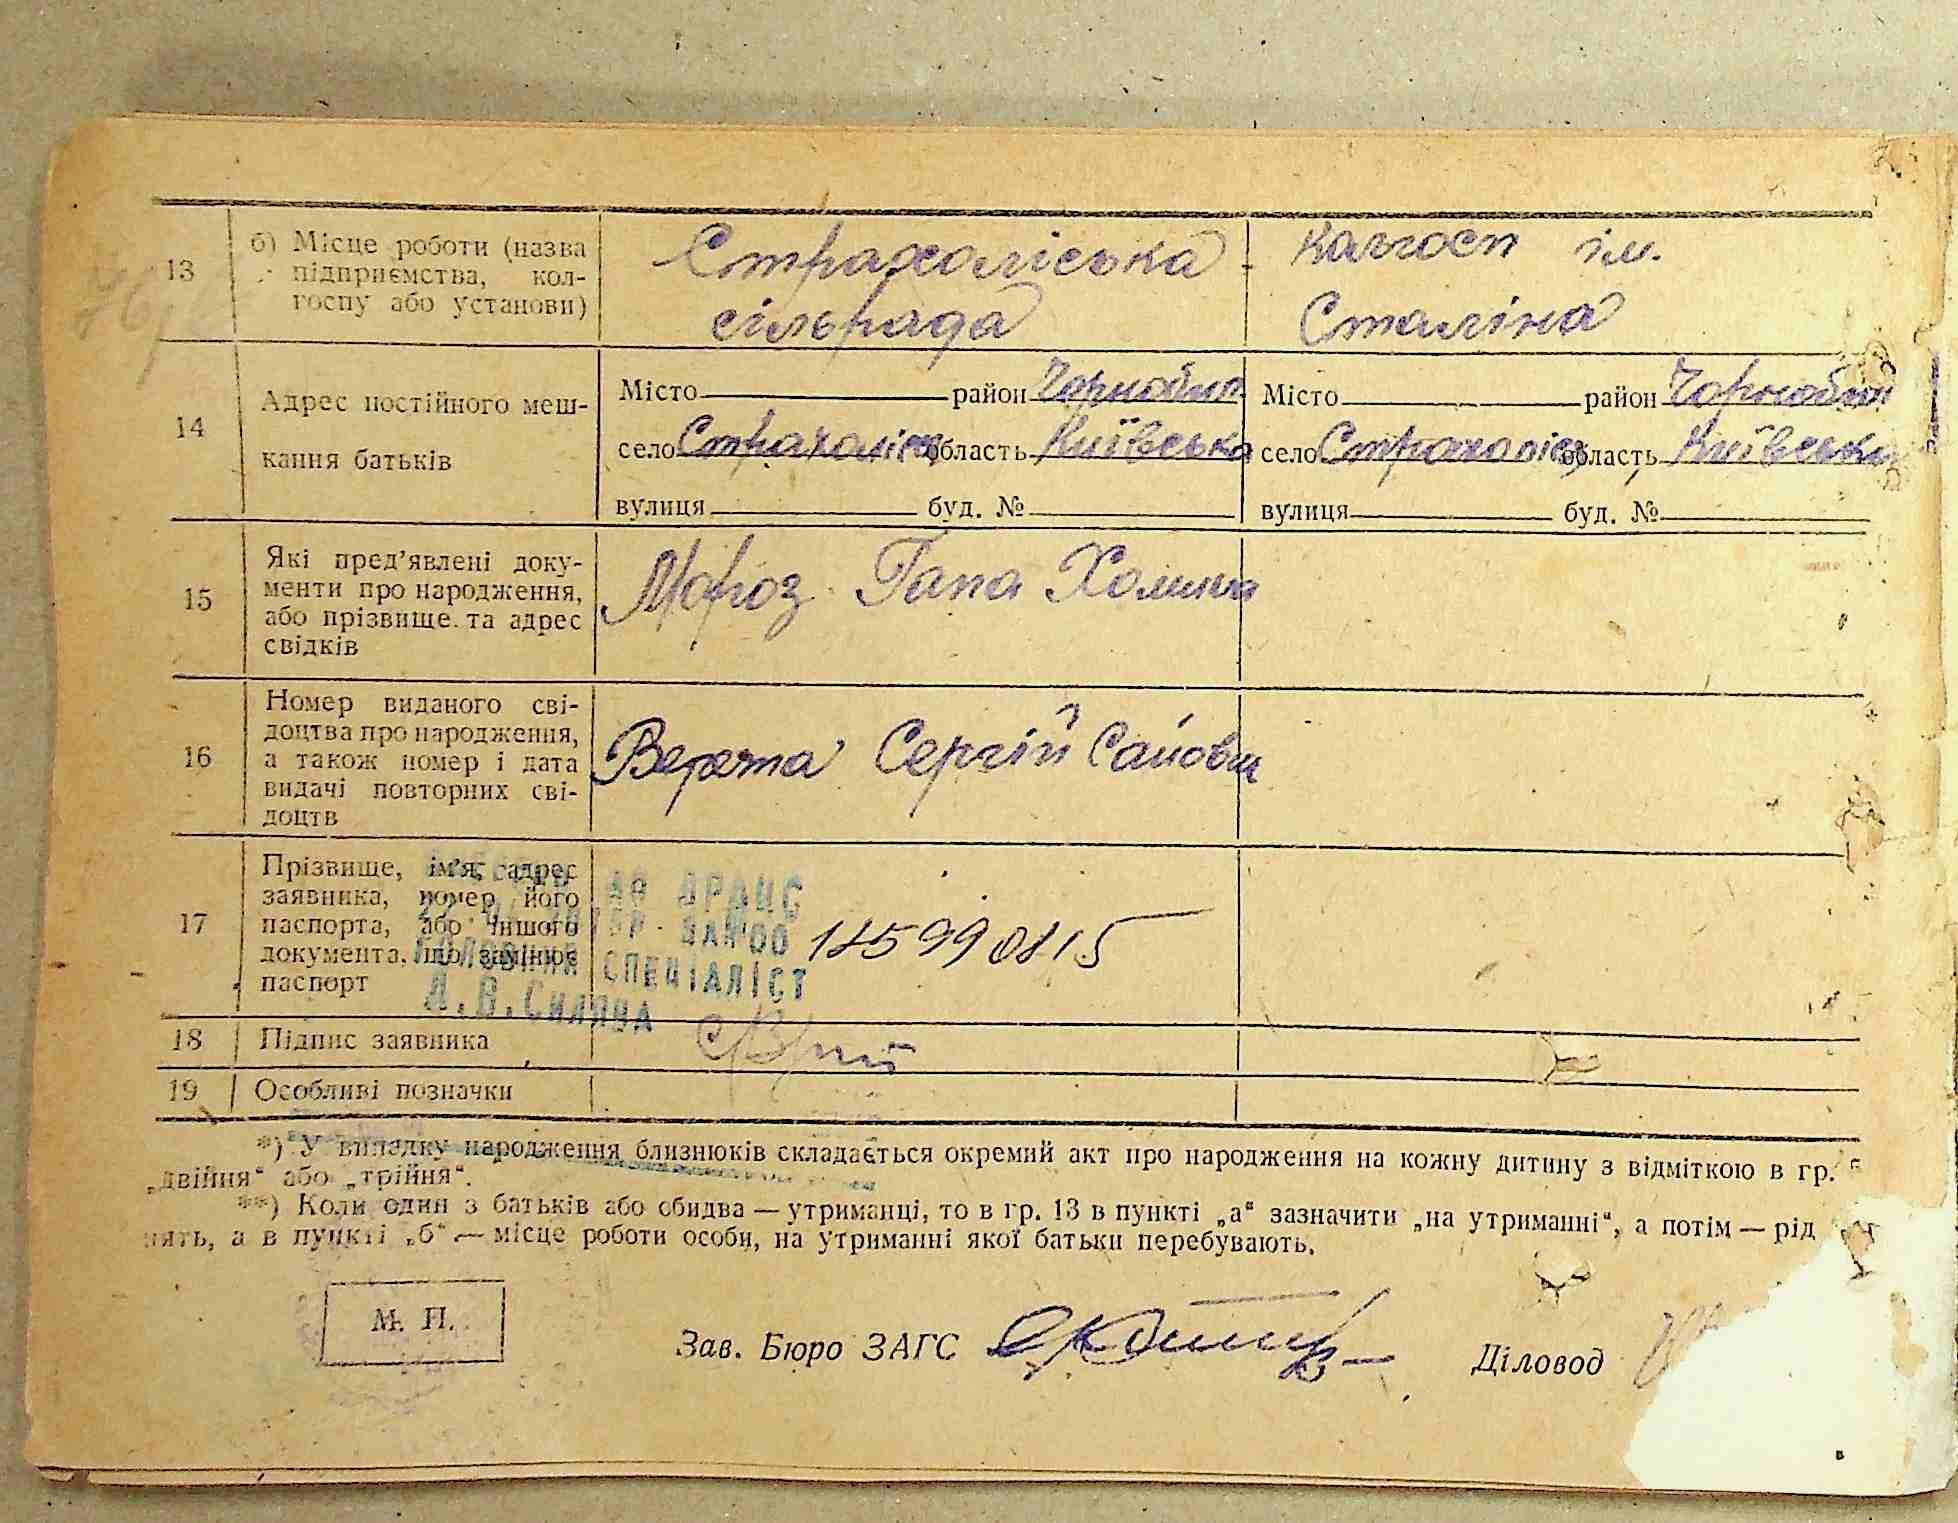 13
б) Місце роботи (назва
підприємства, кол-
госпу або установи)
Страхоліська
сільрада
Колгосп ім.
Сталіна
14
Адрес постійного меш-
кання батьків
Місто район Чорнобил
село Страхоліся область Київська
вулиця буд. №
Місто район Чорнобил
село Страхоліся область Київська
вулиця буд. №
15
Які пред'явлені доку-
менти про народження,
або прізвище та адрес
свідків
Мороз Гапа
16
Номер виданого сві-
доцтва про народження,
а також номер і дата
видачі повторних сві-
доцтв
Сергій
17
Прізвище, ім'я, адрес
заявника, номер його
паспорта, або іншого
документа, що замінює
паспорт
ДРАЦС
СПЕЦІАЛІСТ
18
Підпис заявника
19
Особливі позначки
*) У випадку народження близнюків складається окремий акт про народження на кожну дитину з відміткою в гр. 5
„двійня“ або „трійня“.
**) Коли один з батьків або обидва — утриманці, то в гр. 13 в пункті „а“ зазначити „на утриманні“, а потім — рід
нять, а в пункті „б“ — місце роботи особи, на утриманні якої батьки перебувають.
М. П.
Зав. Бюро ЗАГС
Діловод